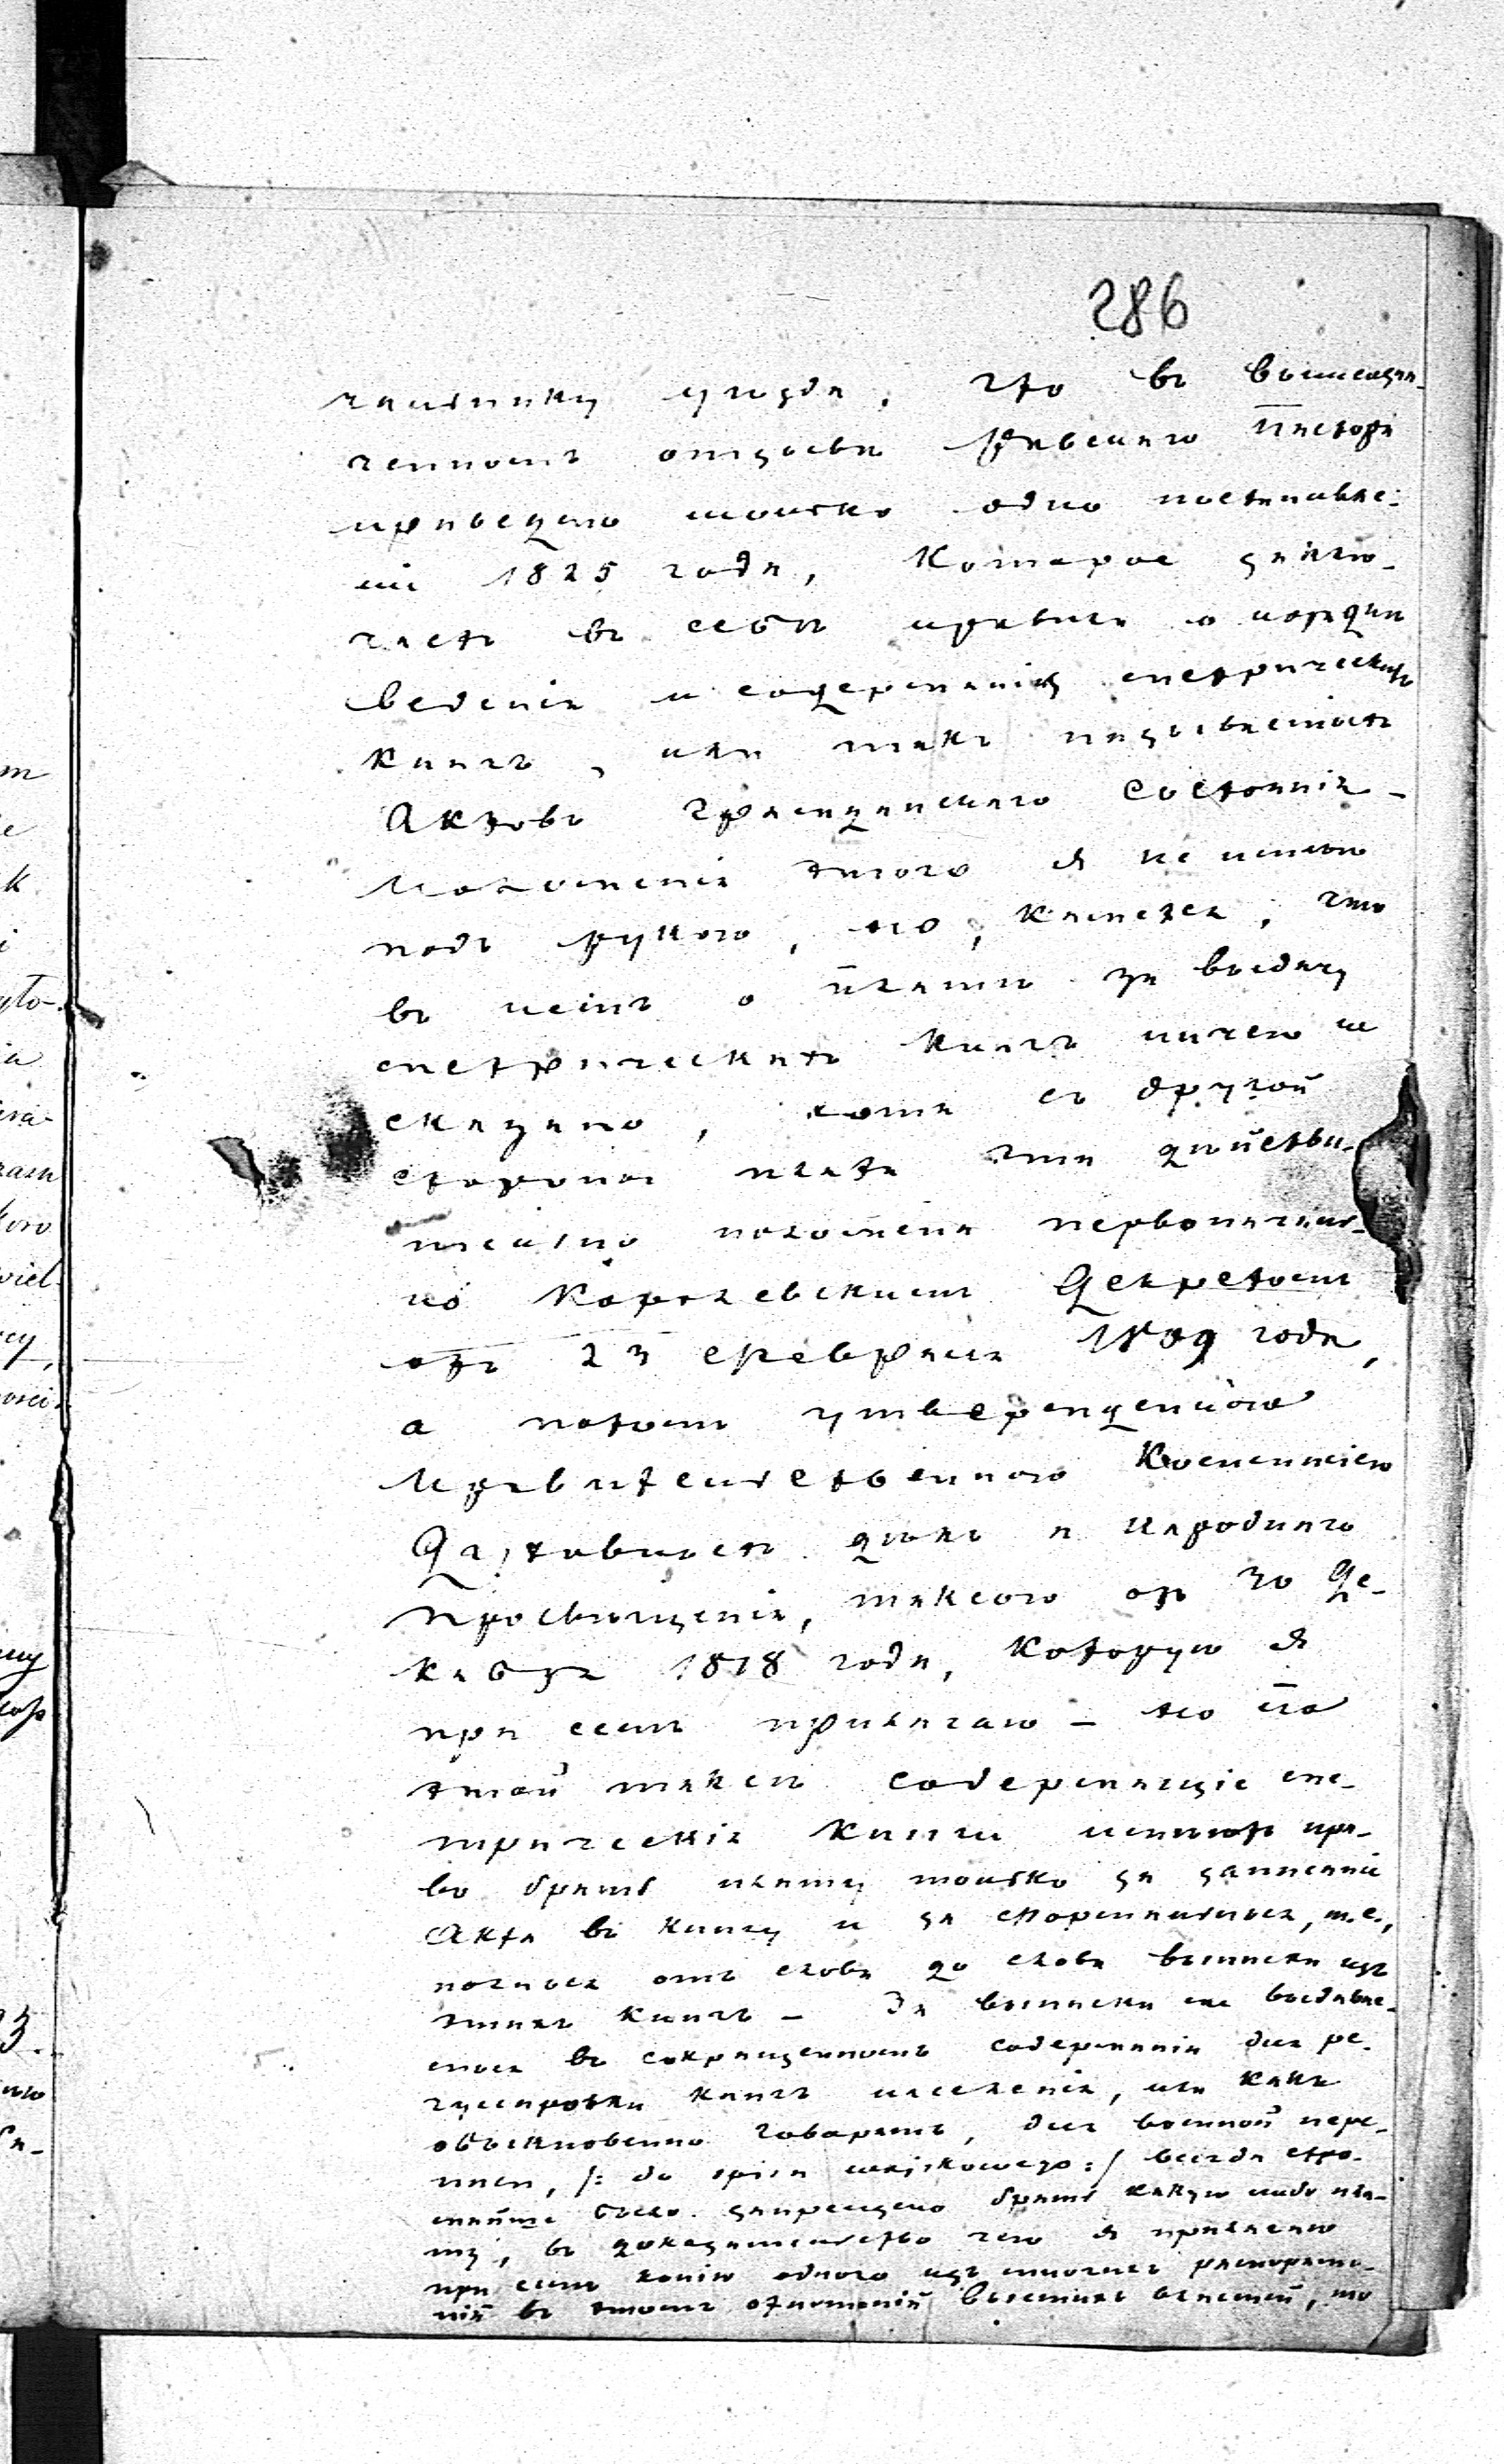 286
чальнику уѣзда, что въ вышеозна-
ченномъ отзывѣ Равскаго Пастора
приведено только одно постановле-
ніе 1825 года, Которое заклю-
чаетъ въ себѣ правила о порядкѣ
веденія и содержанія метрическихъ
Книгъ, или такъ называемыхъ
Актовъ Гражданскаго Состоянія –
Положенія этого я не имѣю
подъ рукою, но, Кажется, что
въ немъ о платѣ за выдачу
метрическихъ Книгъ ничего не
сказано, хотя съ другой
стороны плата эта дѣйстви-
тельно положена первоначаль-
но Королевскимъ Декретомъ
отъ 23 Февраля 1809 года,
а потомъ утвержденною
Правительственною Коммиссіею
Духовныхъ дѣлъ и Народнаго
Просвѣщенія, таксою отъ 30 Де-
кабря 1818 года, Которую я
при семъ прилагаю – но по
этой таксѣ содержащіе ме-
трическія Книги имѣютъ пра-
во брать плату только за записаніе
Акта въ Книгу и за формальныя, т. е.,
полныя отъ слова до слова выписки изъ
этихъ Книгъ – За выписки же выдавае-
мыя въ сокращенномъ содержаніи для ре-
гулировки Книгъ населенія, или какъ
обыкновенно говорятъ, для военной пере-
писи, /: do spisu wojskowego :/ всегда стро-
жайше было запрещено брать какую либо пла-
ту, въ доказательство чего я прилагаю
при семъ копію одного изъ многихъ распоряже-
ній въ этомъ отношеніи Высшихъ властей, то